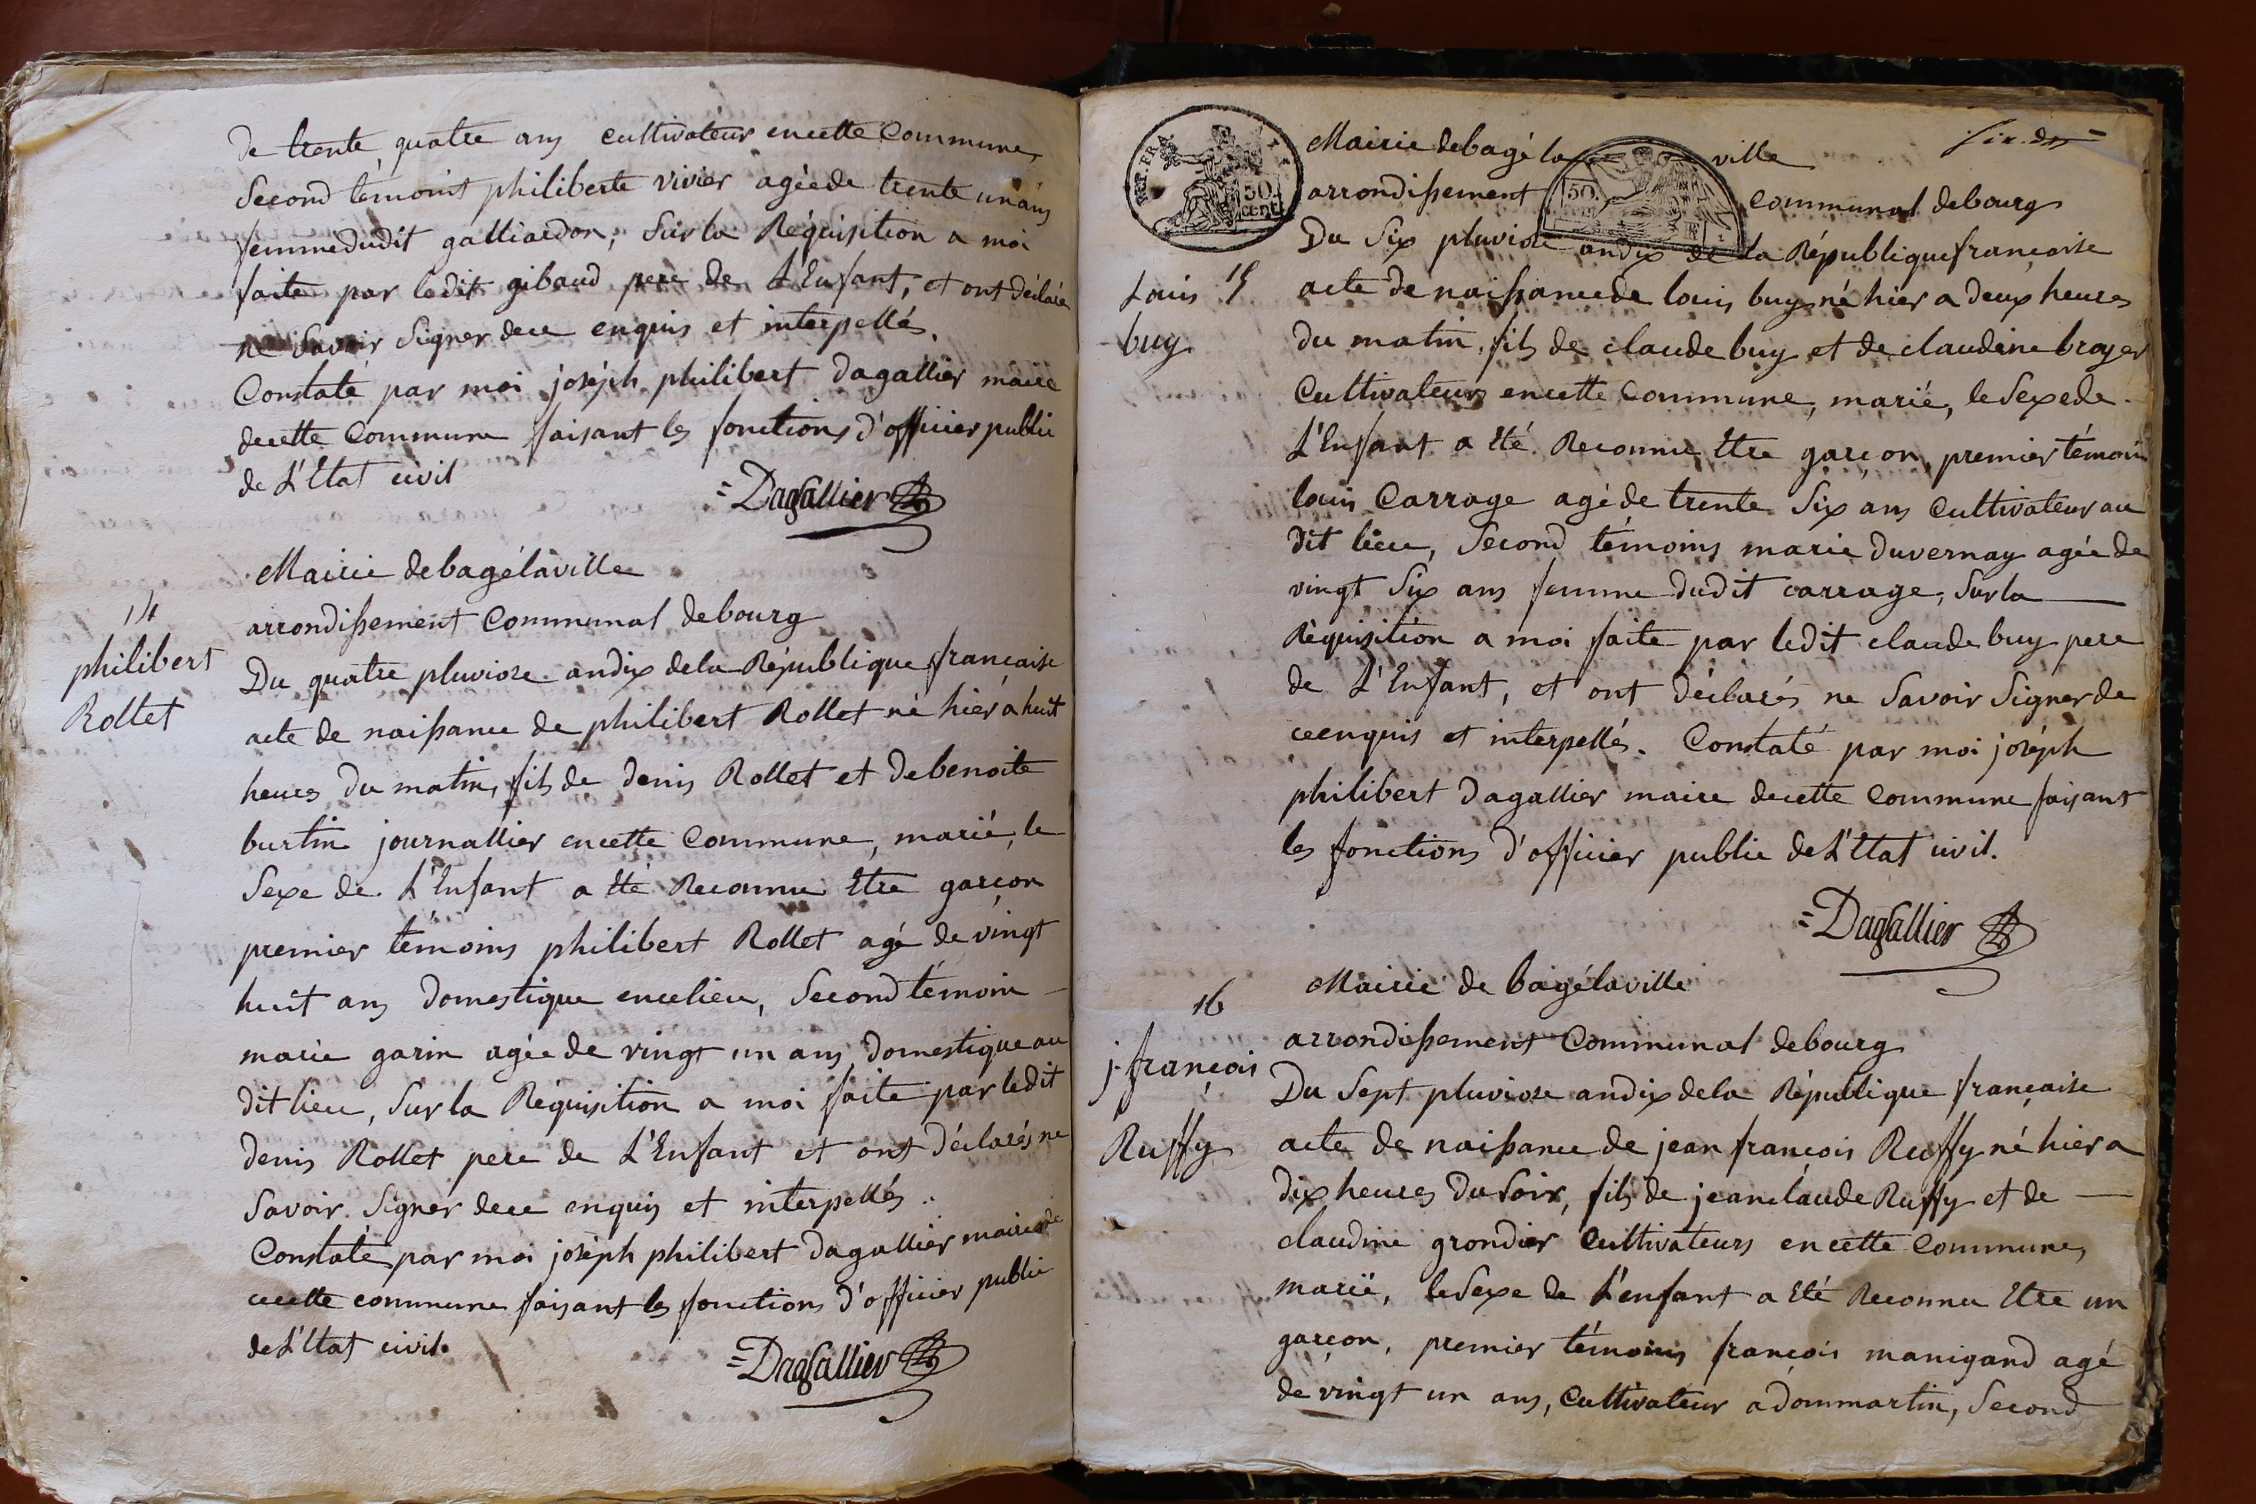 de trente quatre ans cultivateur encette Commune,
Second témoint philiberte vivier agéede trente un ans
femmedudit galliardon, Sur la Réquisition a moi
faite par ledit gibaud pere de L'Enfant, et ont déclaré
ne Savoir Signer dece enquis et interpellés.
Constaté par moi joséph philibert dagallier maire
decette Commune faisant les fonctions d'officier public
de L'Etat civil
=Dagallier
14
philibert
Rollet
Mairie debagélaville
arrondissement Communal debourg
Du quatre pluviose andix dela République française
acte de naissance de philibert Rollet né hier a huit
heures du matin, fils de denis Rollet et debenoite
burtin journallier encette Commune, marié, le
Sexe de L'Enfant a Eté Reconnu Etre garçon
premier témoins philibert Rollet agé de vingt
huit ans domestique encelieu, Second témoin
marie garin agée de vingt un ans domestique au
dit lieu, Sur la Réquisition a moi faite par ledit
denis Rollet pere de L'Enfant et ont déclarés ne
Savoir Signer dece enquis et interpellés.
Constaté par moi joséph philibert dagallier maire de
cecette commune faisant les fonctions d'officier public
deL'Etat civil.
=Dagallier
REP. FRA.
50
cent
50
Mairie debagé la ville
arrondissement communal debourg
Du Six pluviose andix de la République française
Louis 15
buy
acte de naissancede louis buy né hier a deux heures
du matin, fils de claude buy et de claudine broyer
Cultivateurs encette Commune, marié, le Sexede
L'Enfant a Eté Reconnu Etre garçon, premier témoin
louis Carrage agé de trente Six ans Cultivateur au
dit lieu, Second témoins marie duvernay agée de
vingt Six ans femme dudit carrage, Sur la
Réquisition a moi faite par ledit claude buy pere
de L'Enfant, et ont déclarés ne Savoir Signer de
ceenquis et interpellés. Constaté par moi joséph
philibert dagallier maire decette Commune faisant
les fonctions d'officier public de L'Etat civil.
=Dagallier
16
j. françois
Ruffy
Mairie de bagélaville
arrondissement Communal debourg
Du Sept pluviose andix dela République française
acte de naissance de jean françois Ruffy né hier a
dix heures du Soir, fils de jeanclaude Ruffy et de
claudine grondier Cultivateurs encette Commune,
marié, le Sexe de L'enfant a Eté Reconnu Etre un
garçon, premier témoins françois manigand agé
de vingt un ans, Cultivateur a dommartin, Second